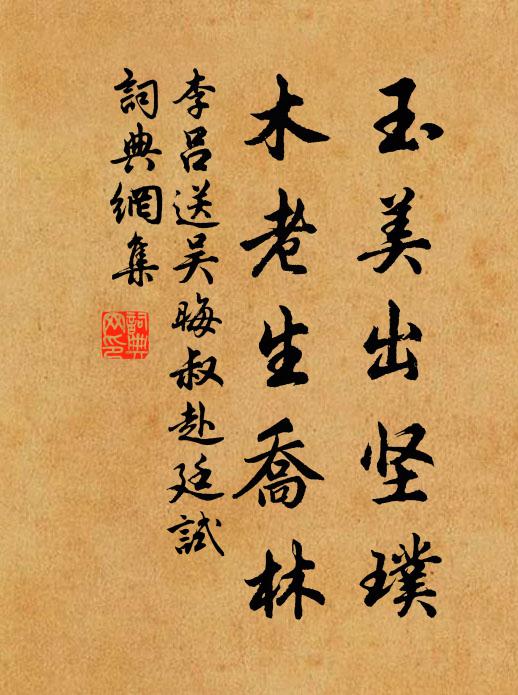 玉美出坚璞
木老生喬林
李呂送吴晦叔赴廷試
詞典網集
詞典网印